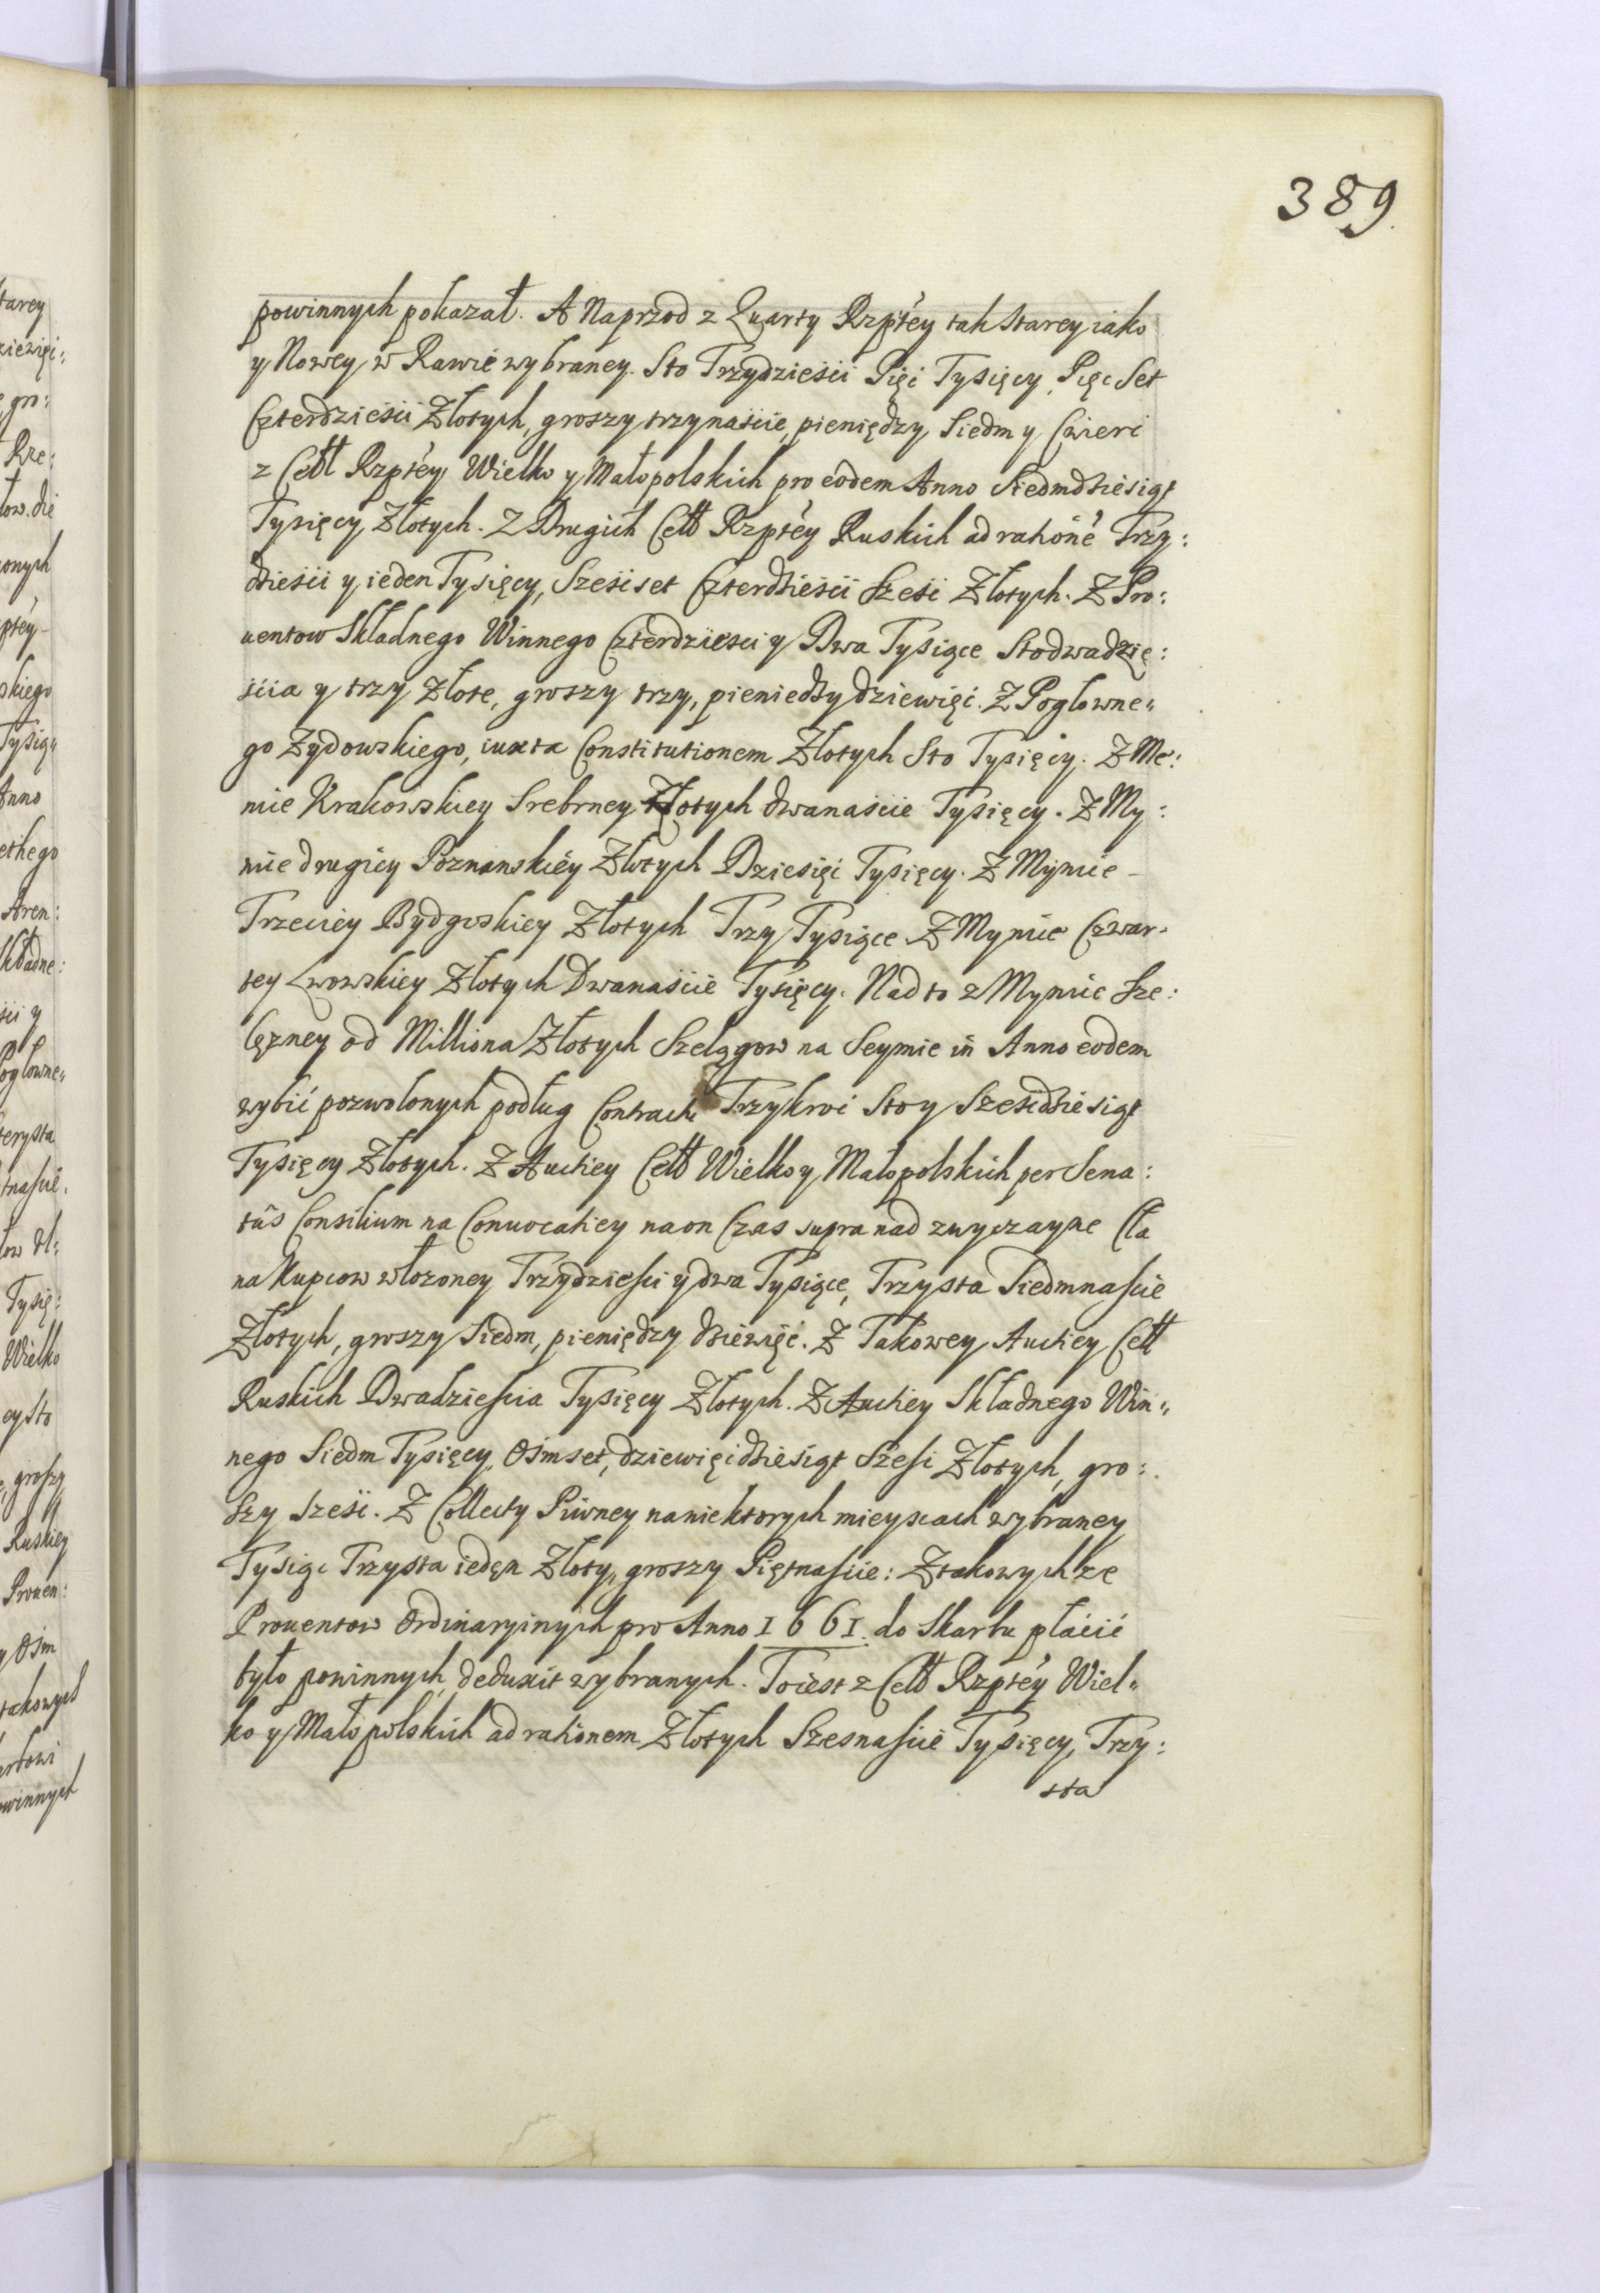 389.
powinnych pokazał. A Naprzod z Quarty Rzptéy tak Starey iako
y Nowey w Rawie wybraney. Sto Trzydzieści Pięć Tysięcy, Pięc Set
Czterdzieści Złotych, groszy trzynaście, pieniędzy Siedm y Ćwierć
z Cełł Rzptéy Wielko y Małopolskich pro eodem Anno Siedmdziesiąt
Tysięcy Złotych. Z Drugich Cełł Rzptéy Ruskich ad rationé Trzy:
dzieści y ieden Tysięcy, Sześćset Czterdzieści Sześć Złotych. Z Pro:
uentow Składnego Winnego Czterdzieści y Dwa Tysiące Stodwadzie:
ścia y trzy złote, groszy trzy, pieniedzy dziewięć. Z Pogłowne„
go Zydowskiego, iuxta Constitutionem Złotych Sto Tysięcy. Z Me:
nnie Krakowskiey Srebrney Złotych dwanaście Tysięcy. Z My:
nnie drugiey Poznanskiéy Złotych Dziesięć Tysięcy. Z Mynnie
Trzeciey Bydgoskiey Złotych Trzy Tysiące. Z Mynnie Czwar-
tey Lwowskiey Złotych Dwanaście Tysięcy. Nad to z Mynnie Sze:
lężney od Milliona Złotych Szelągow na Seymie in Anno eodem
wybić pozwolonych podług Contractu Trzykroć Sto y Sześćdziesiąt
Tysięcy Złotych. Z Auctiey Cełł Wielko y Małopolskich per Sena:
tûs Consilium na Conuocatiey na on Czas supra nad zwyczayne Cła
na Kupcow włozoney Trzydziesci y dwa Tysiące, Trzysta Siedmnascie
Złotych, groszy Siedm, pieniędzy dziewięć. Z Takowey Auctiey Cełł
Ruskich Dwadziescia Tysięcy Złotych. Z Auctiey Składnego Win„
nego Siedm Tysięcy, Ośmset, dziewięćdziesiąt Sześć Złotych, gro:
szy sześć. Z Collecty Piwney na niektorych mieyscach wybraney
Tysiąc Trzysta ieden Złoty, groszy Piętnascie: Z takowych ze
Prouentow Ordinaryinych pro Anno 1661. do Skarbu płacić
było powinnych, deduxit wybranych. To iest z Cełł Rzptéy Wiel„
ko y Małopolskich ad rationem Złotych Szesnascie Tysięcy, Trzy:
sta